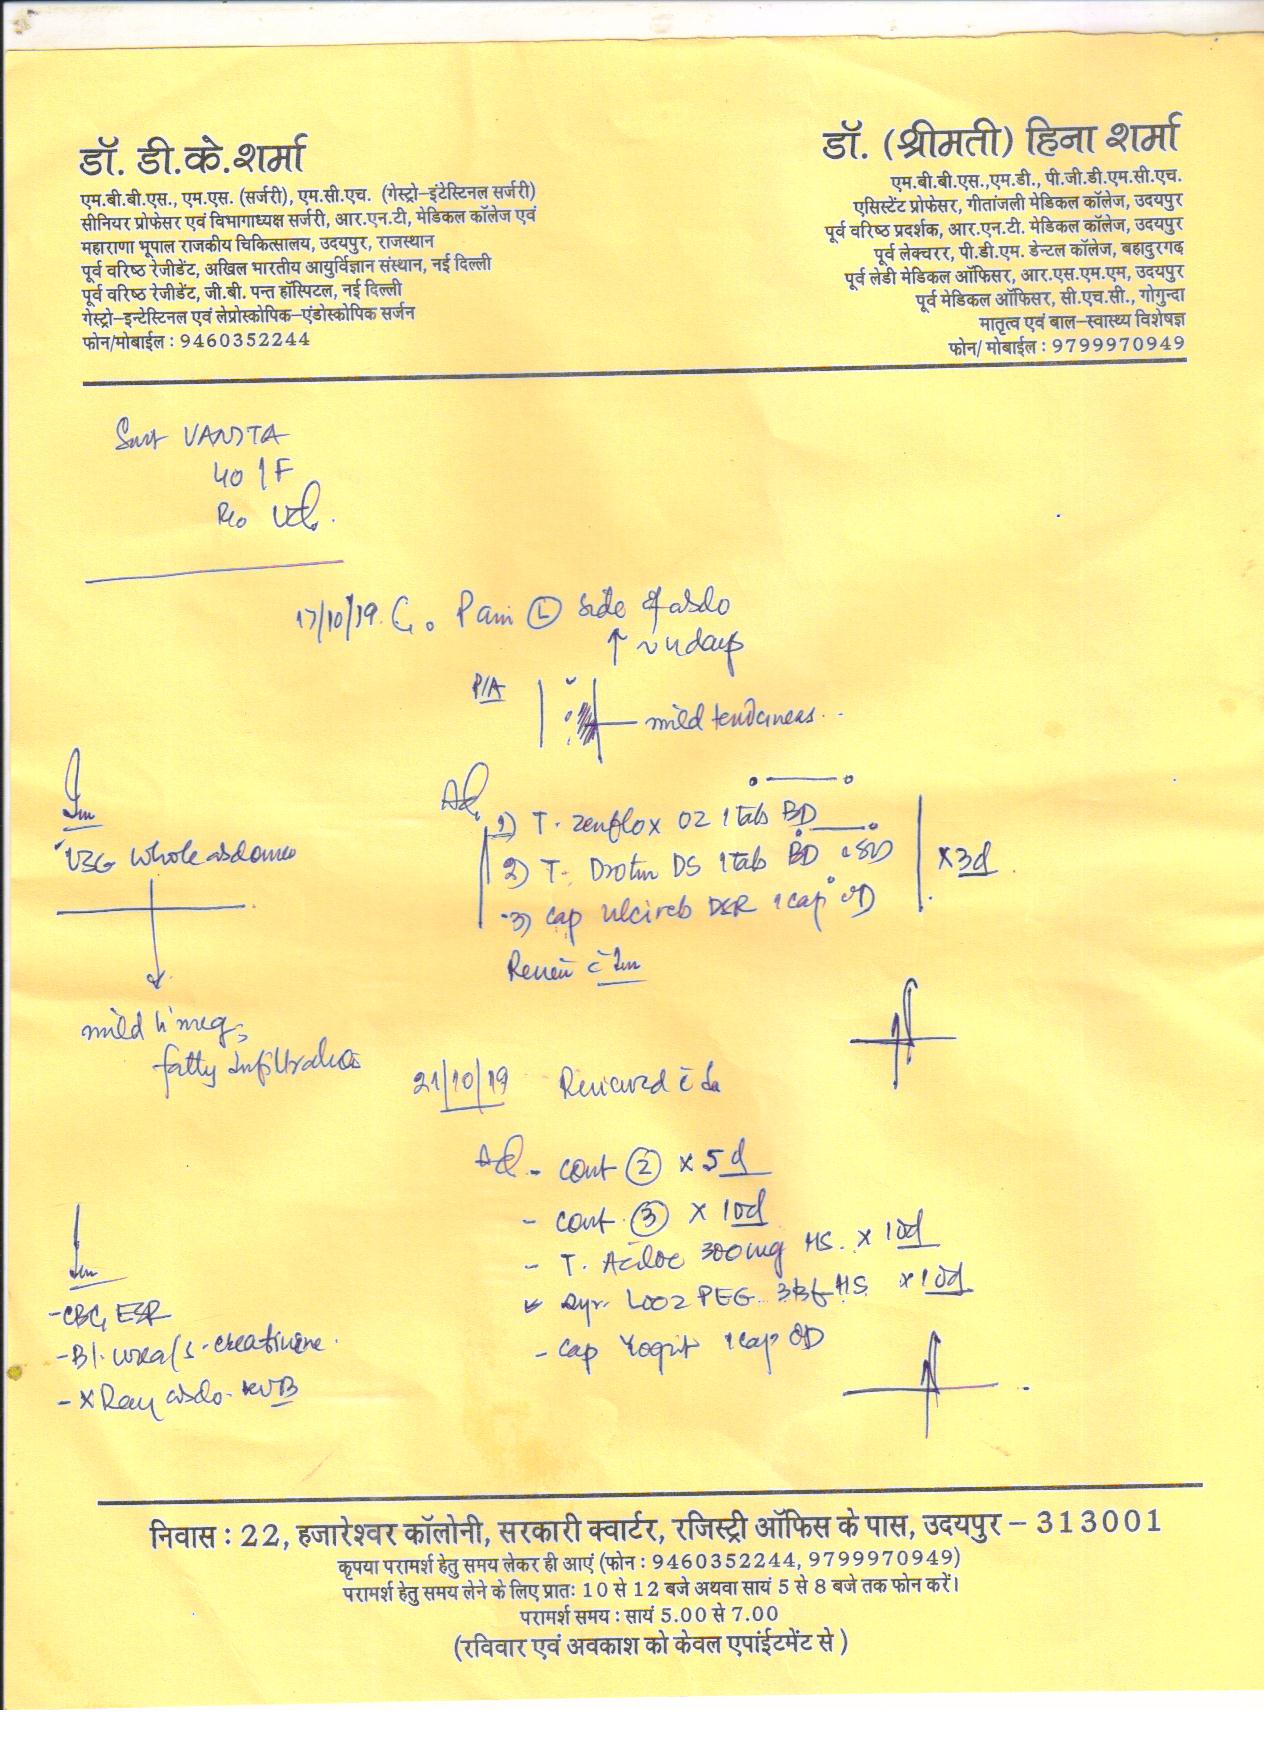 डॉ. डी.के.शर्मा
एम.बी.बी.एस., एम.एस. (सर्जरी), एम.सी.एच. (गेस्ट्रो-इंटेस्टिनल सर्जरी)
सीनियर प्रोफेसर एवं विभागाध्यक्ष सर्जरी, आर.एन.टी, मेडिकल कॉलेज एवं
महाराणा भूपाल राजकीय चिकित्सालय, उदयपुर, राजस्थान
पूर्व वरिष्ठ रेजीडेंट, अखिल भारतीय आयुर्विज्ञान संस्थान, नई दिल्ली
पूर्व वरिष्ठ रेजीडेंट, जी.बी. पन्त हॉस्पिटल, नई दिल्ली
गेस्ट्रो-इन्टेस्टिनल एवं लेप्रोस्कोपिक-एंडोस्कोपिक सर्जन
फोन/मोबाईल : 9460352244
डॉ. (श्रीमती) हिना शर्मा
एम.बी.बी.एस.,एम.डी., पी.जी.डी.एम.सी.एच.
एसिस्टेंट प्रोफेसर, गीतांजली मेडिकल कॉलेज, उदयपुर
पूर्व वरिष्ठ प्रदर्शक, आर.एन.टी. मेडिकल कॉलेज, उदयपुर
पूर्व लेक्चरर, पी.डी.एम. डेन्टल कॉलेज, बहादुरगढ़
पूर्व लेडी मेडिकल ऑफिसर, आर.एस.एम.एम, उदयपुर
पूर्व मेडिकल ऑफिसर, सी.एच.सी., गोगुन्दा
मातृत्व एवं बाल-स्वास्थ्य विशेषज्ञ
फोन/ मोबाईल : 9799970949
Smt VANITA
40 / F
R/o Ud.
17/10/19. C/o Pain Ⓛ side of abdo
↑ ~ 4 days
P/A
mild tenderness..
Inv
USG whole abdomen
mild h'meg,
fatty infiltration
Ad.
1) T. Zenflox OZ 1 tab BD
2) T. Drotin DS 1 tab BD
3) Cap Ulcireb DSR 1 cap OD
x 3d
Review c̄ Inv
21/10/19 Reviewed c̄
Ad - cont ② x 5d
- cont ③ x 10d
- T. Aciloc 300mg HS. x 10d
Syr. LOOZ PEG HS x 10d
- cap Yogut 1 cap OD
Inv
- CBC, ESR
- Bl. urea/S. creatinine.
- X Ray abdo. KUB
निवास : 22, हजारेश्वर कॉलोनी, सरकारी क्वार्टर, रजिस्ट्री ऑफिस के पास, उदयपुर - 313001
कृपया परामर्श हेतु समय लेकर ही आएं (फोन : 9460352244, 9799970949)
परामर्श हेतु समय लेने के लिए प्रातः 10 से 12 बजे अथवा सायं 5 से 8 बजे तक फोन करें।
परामर्श समय : सायं 5.00 से 7.00
(रविवार एवं अवकाश को केवल एपांईटमेंट से )